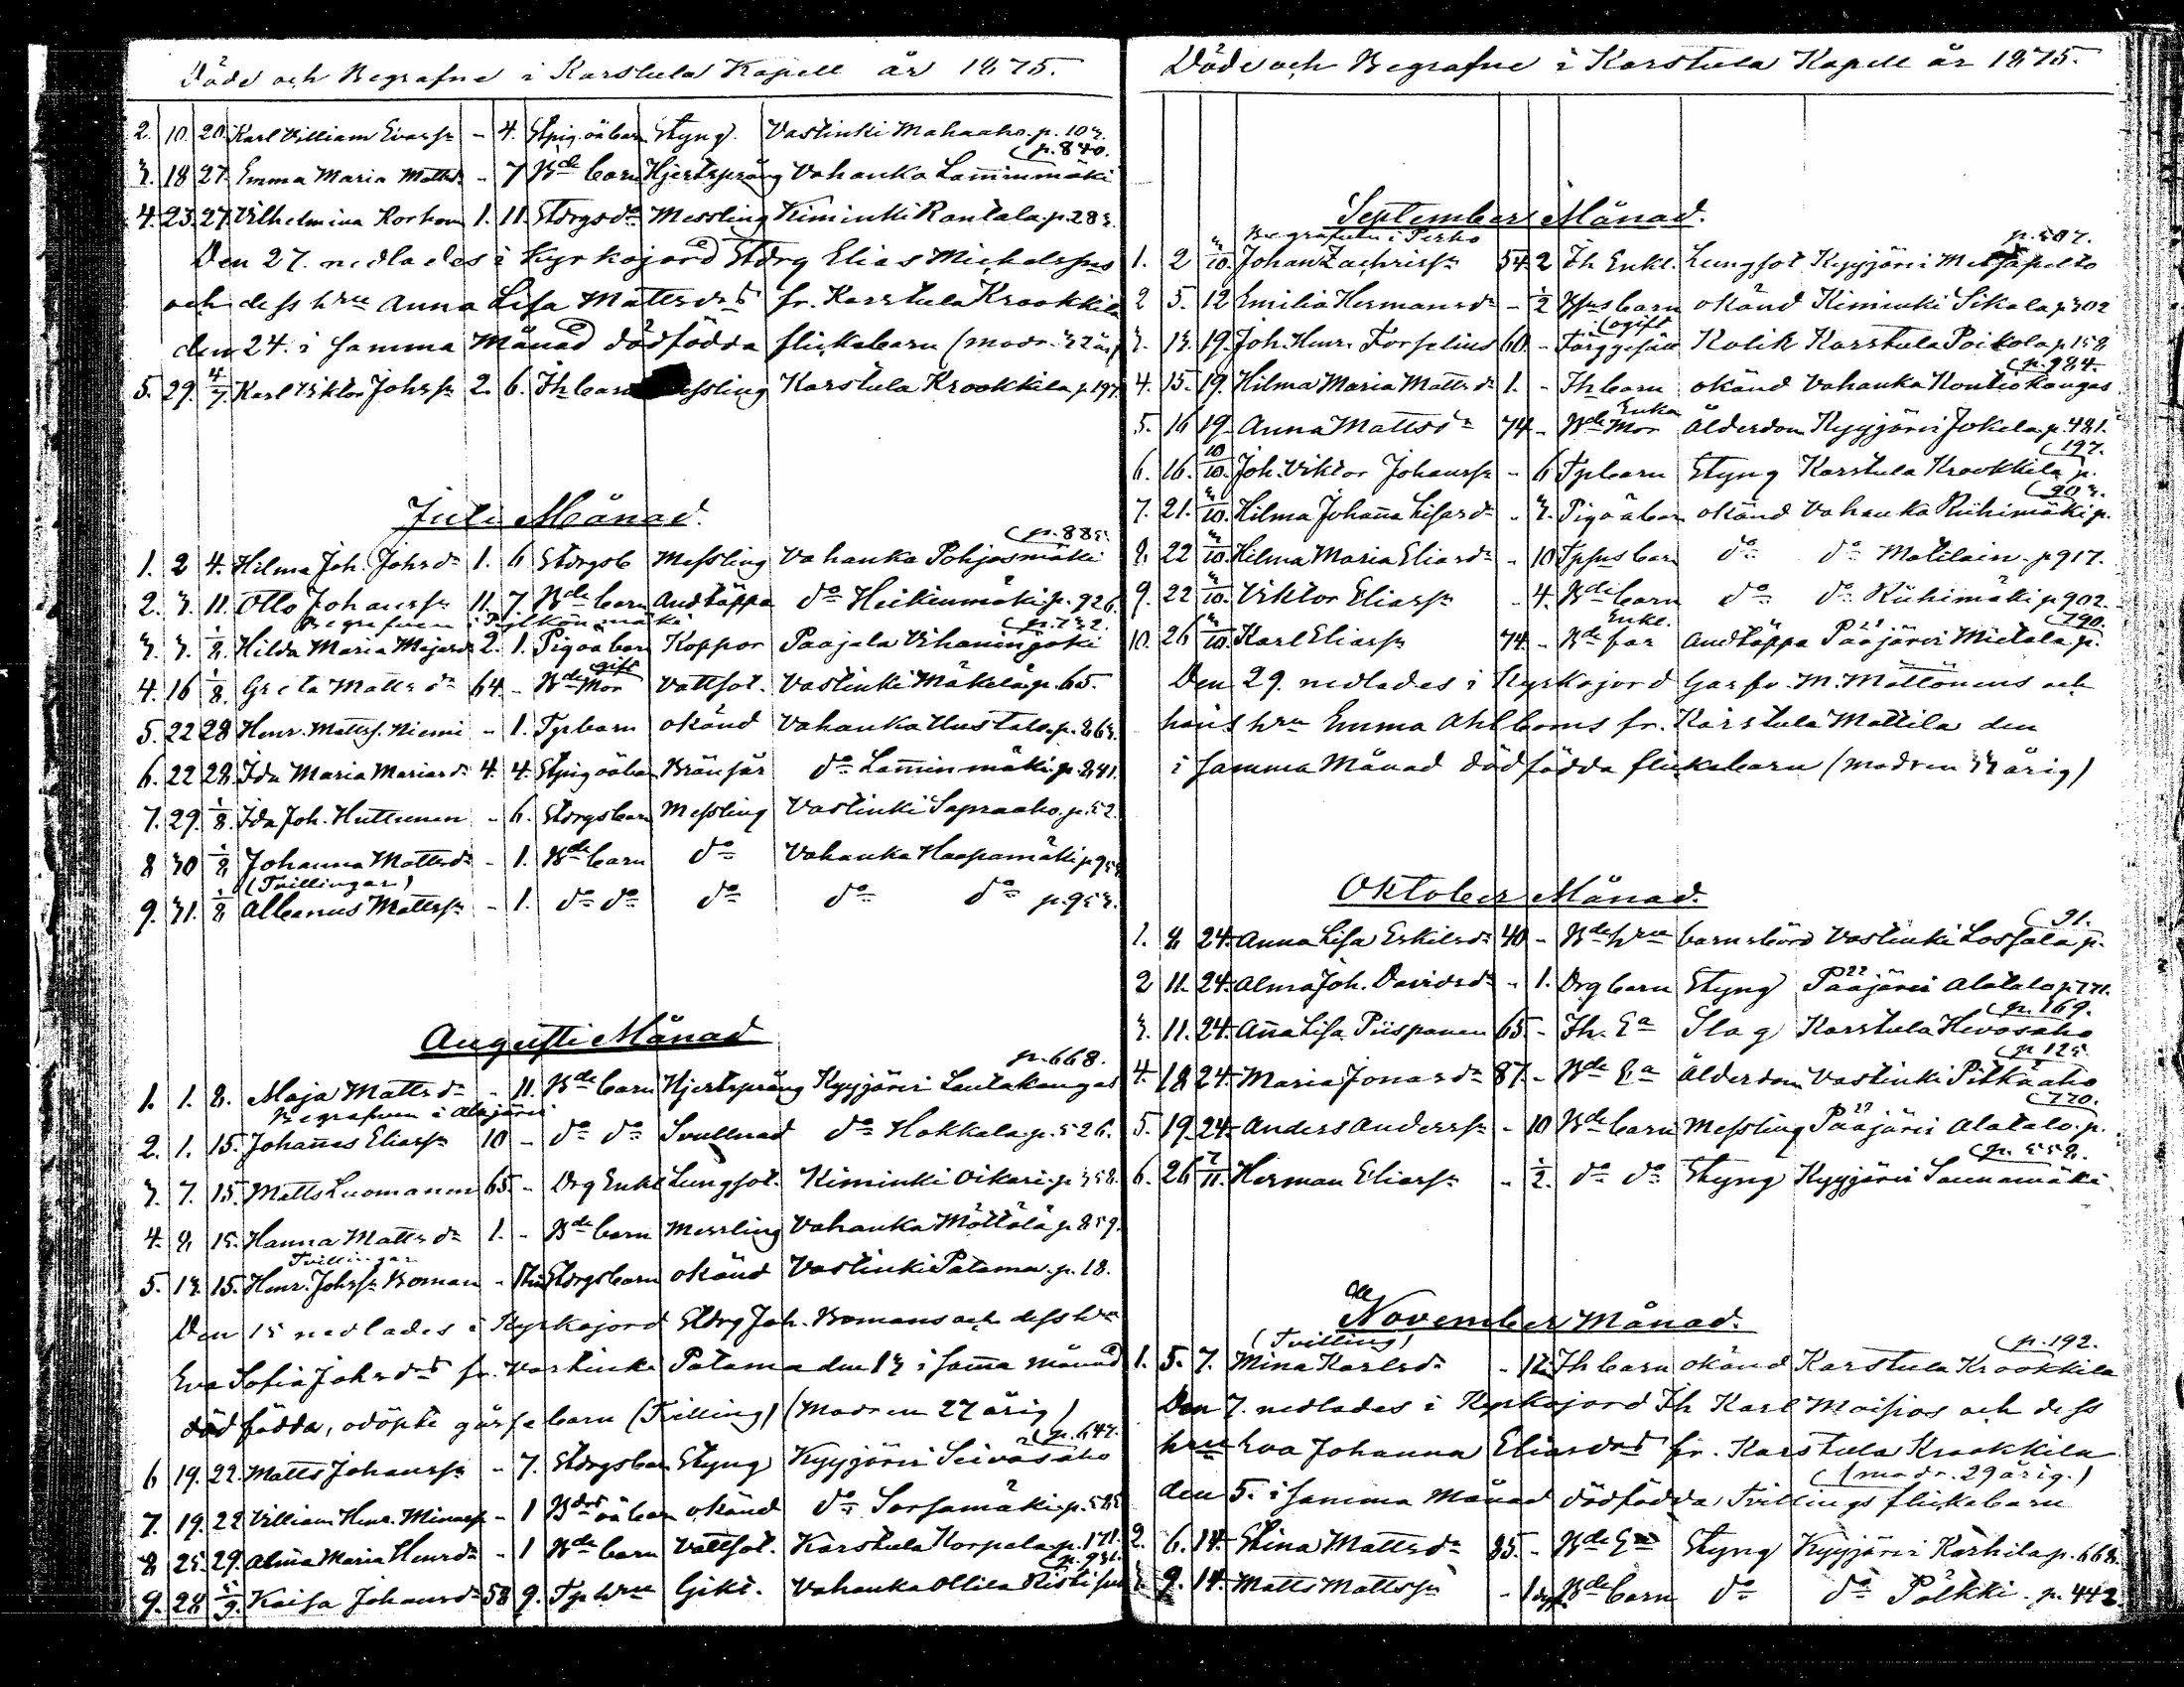 Döde och Begrafne i Karstula Kapell år 1875.
2. 10. 20. Karl William Evass - 4. Stpig. oä barn Styng. Vastinki Mahaaho. p. 103.
(p. 840.
3. 18 27. Emma Maria Mattsdr - 7 Bde barn Hjertsprång Vahanka Lamminmäki
4. 23. 27. Vilhelmina Korhon 1. 11. Stdrgs do Messling Kiminki Rantala. p. 283.
Den 27. nedlades i Kyrkojord Stdrg Elias Michelssons
och dess hru Anna Lisa Mattsdrs fr. Karstula Krookkila
den 24. i samma Månad dödfödda flickebarn (modr. 32 år)
5. 29. 4/7. Karl Viktor Johss 2. 6. Jh barn Messling Karstula Krookkila p. 197.
Juli Månad.
(p. 883.
1. 2 4. Hilma Joh. Johsdr 1. 6 Stdrgsb Messling Vahanka Pohjosmäki
2. 3. 11. Otto Johanss 11. 7. Bde barn Andtäppa do Heikinmäki p. 926.
Begrafven i Pylkönmäki (p. 732.
3. 3. 1/8. Hilda Maria Majasdr 2. 1. Pigoä barn Koppor Paajala Vihaningoki
gift
4. 16 1/8. Greta Mattsdr 64. - Bde Mor Vattsot. Vastinki Mäkelä p. 65.
5. 22 28 Henr. Mattss. Niemi - 1. Tpr barn okänd Vahanka Uustalo. p. 863.
6. 22 28. Ida Maria Mariasdr 4. 4. Stpigoäbar Bränsår do Lamminmäki p. 841.
7. 29. 1/8. Ida Joh. Huttunen - 6. Stdrgsbarn Messling Vastinki Sapraaho. p. 52.
8 30 1/8 Johanna Mattsdr - 1. Bde barn do Vahanka Haapamäki p. 953
(Tvillingar)
9. 31. 1/8 Albanus Mattss - 1. do do do do do p. 953.
Augusti Månad
p. 668.
1. 1. 8. Maja Mattsdr - 11. Bde barn Hjertsprång Kyyjärvi Lautakangas
Begrafven i Alajärvi
2. 1. 15. Johannes Eliass 10 - do do Svullnad do Hokkala. p. 526.
3. 7. 15. Matts Luomanen 65. - Drg Enkl Lungsot. Kiminki Oikari. p. 358.
4. 8. 15. Hanna Mattsdr 1. - Bde barn Messling Vahanka Möttölä p. 859.
Tvillingar
5. 13. 15. Henr. Johss Boman - Stdrgsbarn okänd Vastinki Patama. p. 18.
Den 15 nedlades i Kyrkojord Stdrg Joh. Bomans och dess hru
Eva Sofia Johsdrs fr. Vastinki Patama den 13 i sama månad
dödfödda, odöpte gåssebarn (Tvilling) (Modren 27 årig)
(p. 647.
6 19. 22. Matts Johanss - 7. Stdrgsbar Styng Kyyjärvi Seiväsaho
7. 19. 22 Villiam Henr. Minass - 1 Bdrs oä bar okänd do Sorsamäki. p. 585
8 25. 29. Alma Maria Henrdr - 1 Bde barn Vattsot. Karstula Korpala p. 171.
(p. 931.
9. 28 5/9. Kaisa Johansdr 58 9. Tp hru Gikt. Vahanka Ollila
Döde och Begrafne i Karstula Kapell år 1875.
September Månad.
Begrafven i Perho p. 507.
1. 2 3/10. Johan Zachriss 54. 2 Jh Enkl. Lungsot Kyyjärvi Metsäpelto
2 5. 12 Emilia Hermansdr - 1/2 Bpusbarn okänd Kiminki Sikala p. 302
(ogift
3. 13. 19. Joh. Henr. Forselius 60. - Färggesäll Kolik Karstula Poikola p. 158
(p. 984.
4. 15. 19. Hilma Maria Mattsdr 1. - Jh barn okänd Vahanka Kontiokangas
Enka
5. 16 19. Anna Mattsdr 74 - Bde Mor Ålderdom Kyyjärvi Jokela. p. 481.
(197.
6. 16. 10/10. Joh. Viktor Johanss - 6 Tp barn Styng Karstula Krookkila p.
(903.
7. 21. 3/10. Hilma Johanna Lisasdr - 3. Pigoä bar okänd Vahanka Riihimäki p.
8. 22 3/10. Hilma Maria Eliasdr - 10 Tppus barn do do Matilain. p 917.
9. 22 3/10. Viktor Eliass - 4. Bde barn do do Riihimäki p 902.
Enkl. (790.
10. 26 3/10 Karl Eliass 74. - Bde far Andtäppa Pääjärvi Mietala. p.
Den 29. nedlades i Kyrkojord Garfv. M. Möttönens och
hans hru Emma Ahlboms fr. Karstula Mattila den
i samma Månad dödfödda flickebarn (modren 33 årig)
Oktober Månad.
(91.
1. 8 24. Anna Lisa Eskilsdr 40 - Bde hru barnsbörd Vastinki Lossala p.
2 11. 24. Alma Joh. Davidsdr - 1. Drg barn Styng Pääjärvi Alatalo p. 771.
(p. 169.
3. 11. 24. Anna Lisa Piispanen 65 - Jh. Ea Slag Karstula Hevosaho
(p. 125.
4. 18 24. Maria Jonasdr 87. - Bde Ea Ålderdom Vastinki Pitkäaho
(770.
5. 19. 24. Anders Anderss - 10 Bde barn Messling Pääjärvi Alatalo. p.
(p. 552.
6. 26 7/11. Herman Eliass - 1/2. do do Styng Kyyjärvi Saunamäki
November Månad.
(Tvilling) (p. 192.
1. 5. 7. Mina Karlsdr - Jh barn okänd Karstula Krookkila
Den 7. nedlades i Kyrkojord Jh Karl Moisios och dess
hru Eva Johanna Eliasdrs fr. Karstula Krookkila
(modr. 29 årig.)
den 5. i samma Månad dödfödda Tvillings flickebarn
2. 6. 14. Stina Mattsdr 85. - Bde Ea Styng Kyyjärvi Karhila p. 668.
3. 9. 14. Matts Mattss - 1 Bde barn do do Pölkki. p. 442